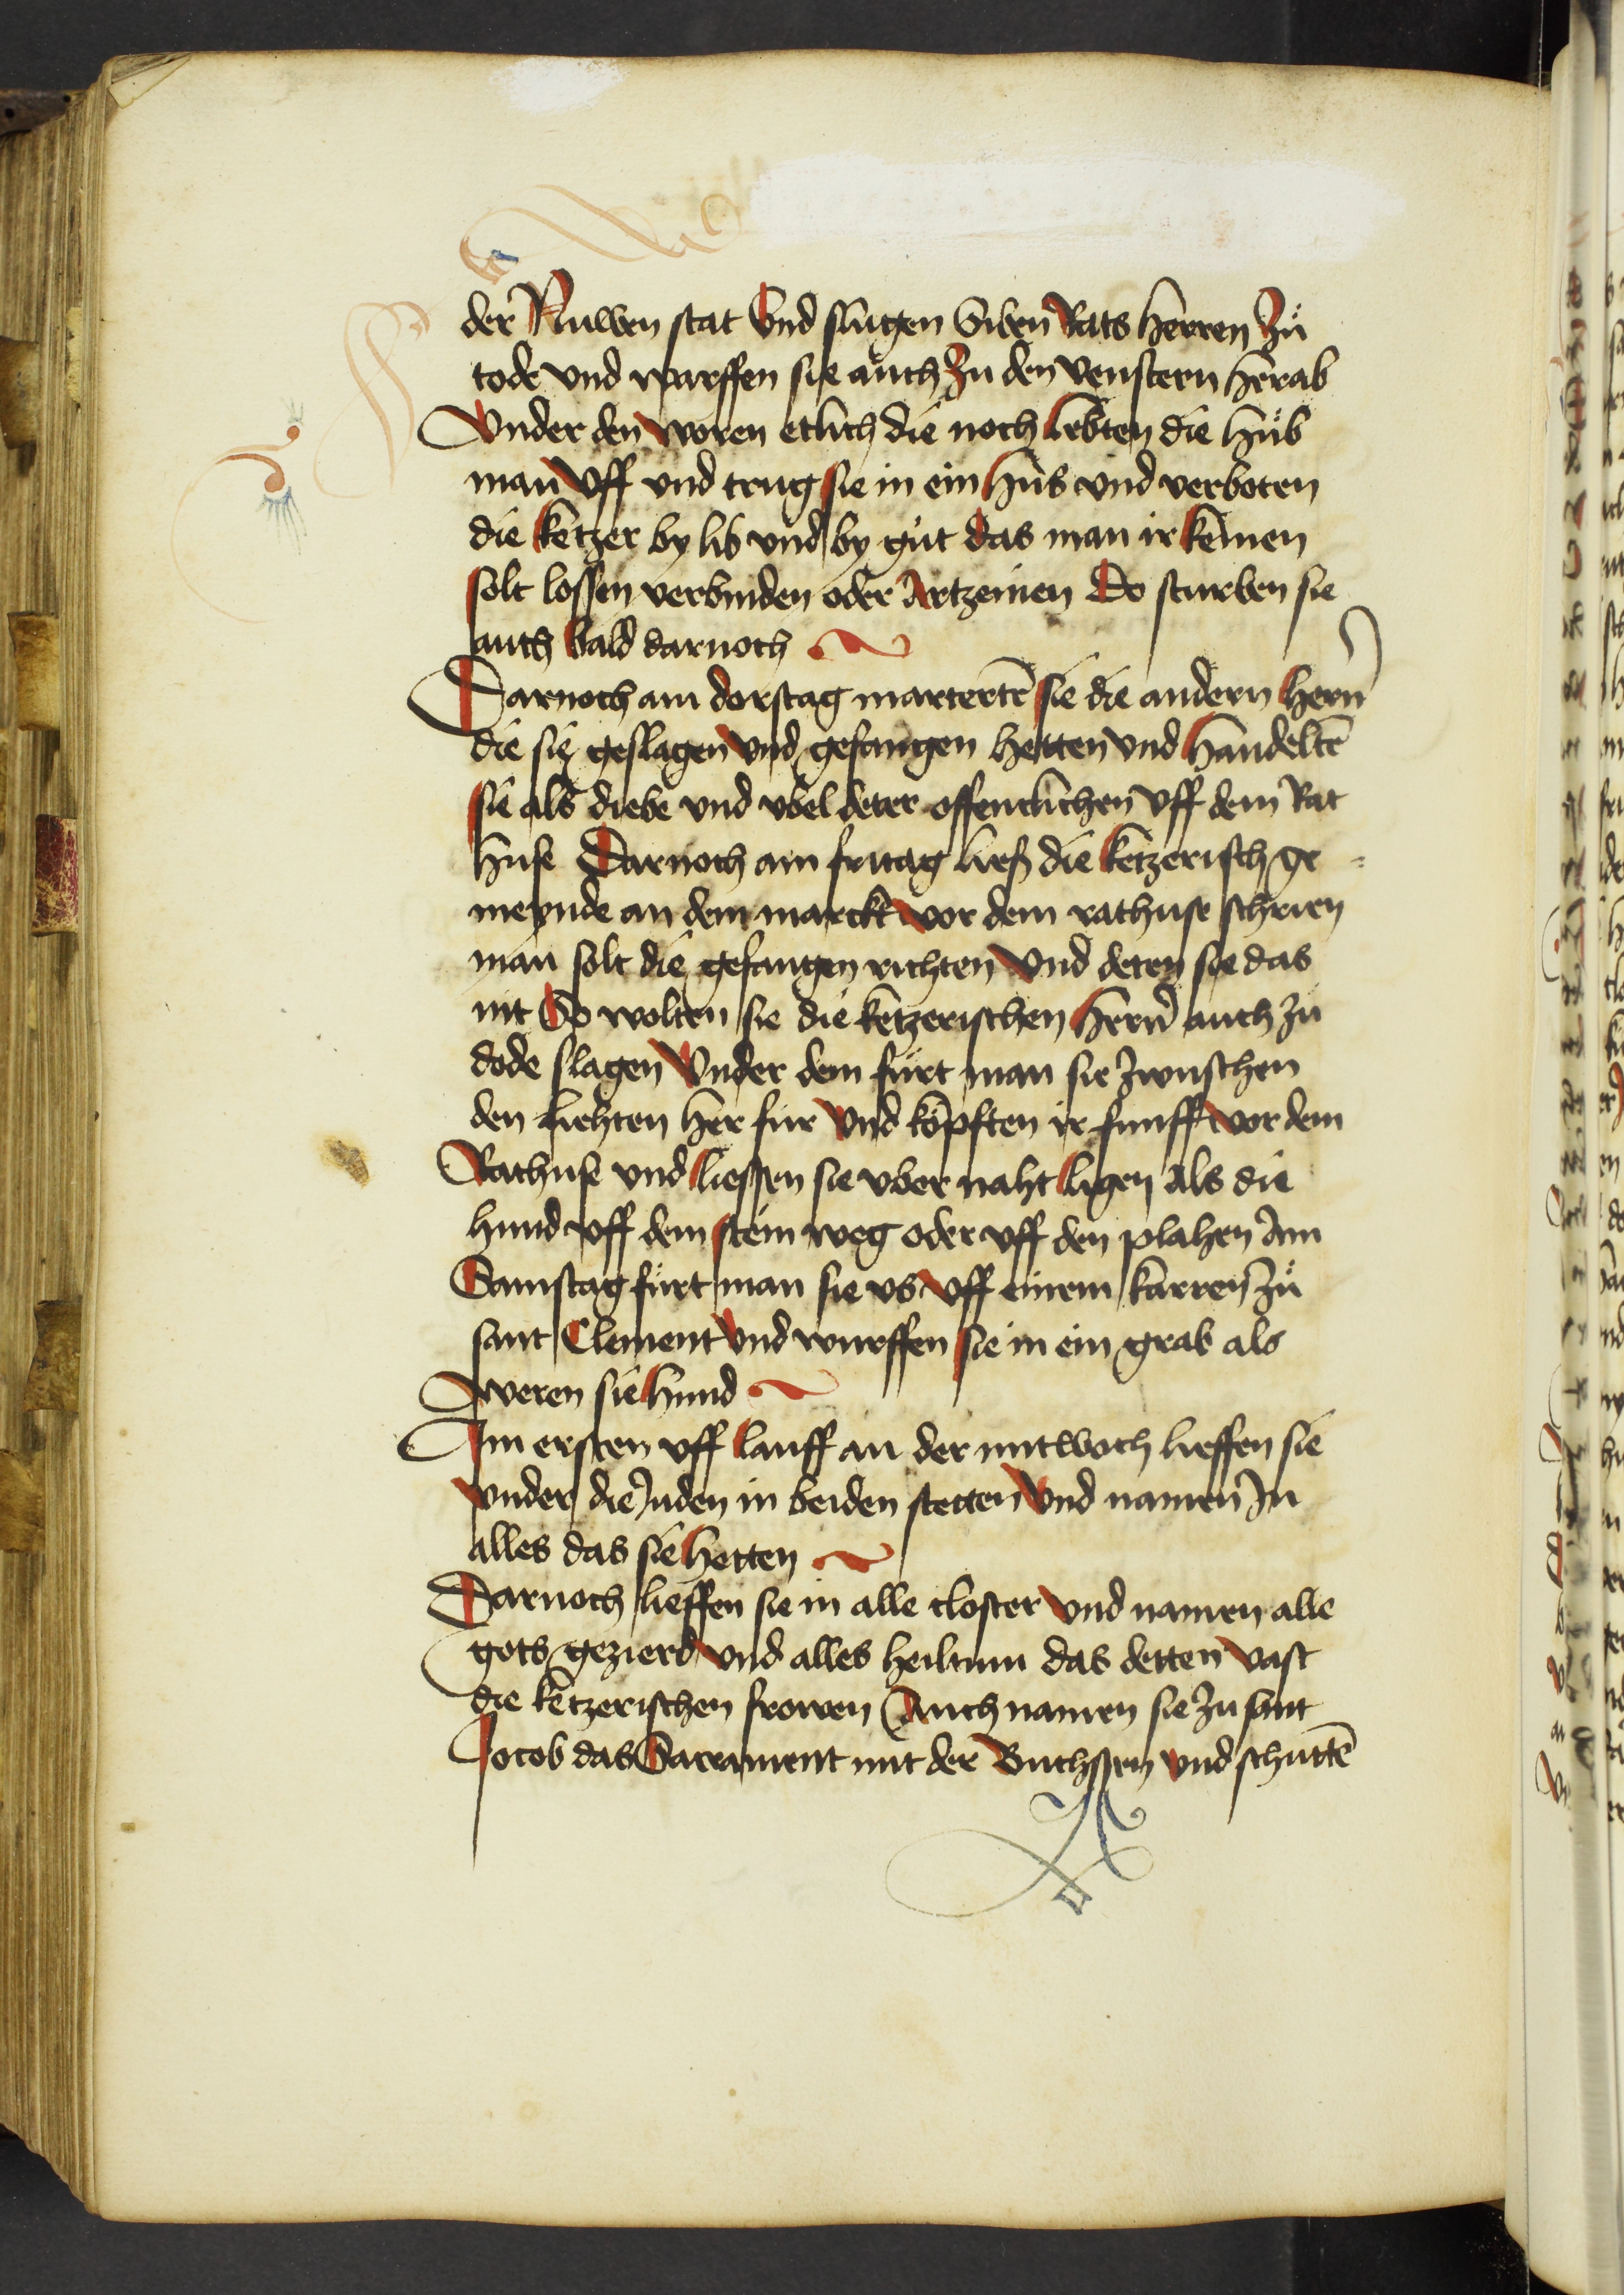 der Nuwen stat Vnd slugen Siben Rats herren Zuͦ
tode vnd warffen sie auch Zu den venstern herab
Vnder den woren etlich die noch lebten die huͦb
man Vff vnd trug sie in ein hus vnd verboten
die ketzer by lib vnd by gut das man ir keinen
solt lossen verbinden oder Artzenien Do sturben sie
auch bald darnoch
Darnoch am dorstag martertē sie die andern hern̄
die sie geslagen vnd gefangen hetten vnd handeltē
sie als diebe vnd vbel deter offentlichen Vff dem Rat
huse Darnoch am fritag lieff die ketzerisch ge =
meynde an dem marckt vor dem rathuse schrien
man solt die gefangen richten Vnd deten sie das
nit So wolten sie die ketzerischen hern̄ auch zu
dode slagen Vnder dem fuͤrt man sie zwuschen
den liehten her fuͤr Vnd koͤpften ir funff vor dem
Rathuse vnd liessen sie vber naht ligen Als die
hund vff dem stein weg oder vff den plahen Am
Samstag fuͤrt man sie vs Vff einem karren Zuͦ
sant Clement Vnd wurffen sie in ein grab als
weren sie hund
Im ersten vff lauff an der mitwoch lieffen sie
vnder die Juden in beiden stetten Vnd namen In
alles das sie hetten
Darnoch lieffen sie in alle closter Vnd namen alle
gots gezierd Vnd alles heiltum das detten vast
die ketzerischen frowen Auch namen sie zu sant
Jocob das Sacrament mit der Buchssen Vnd schuttē